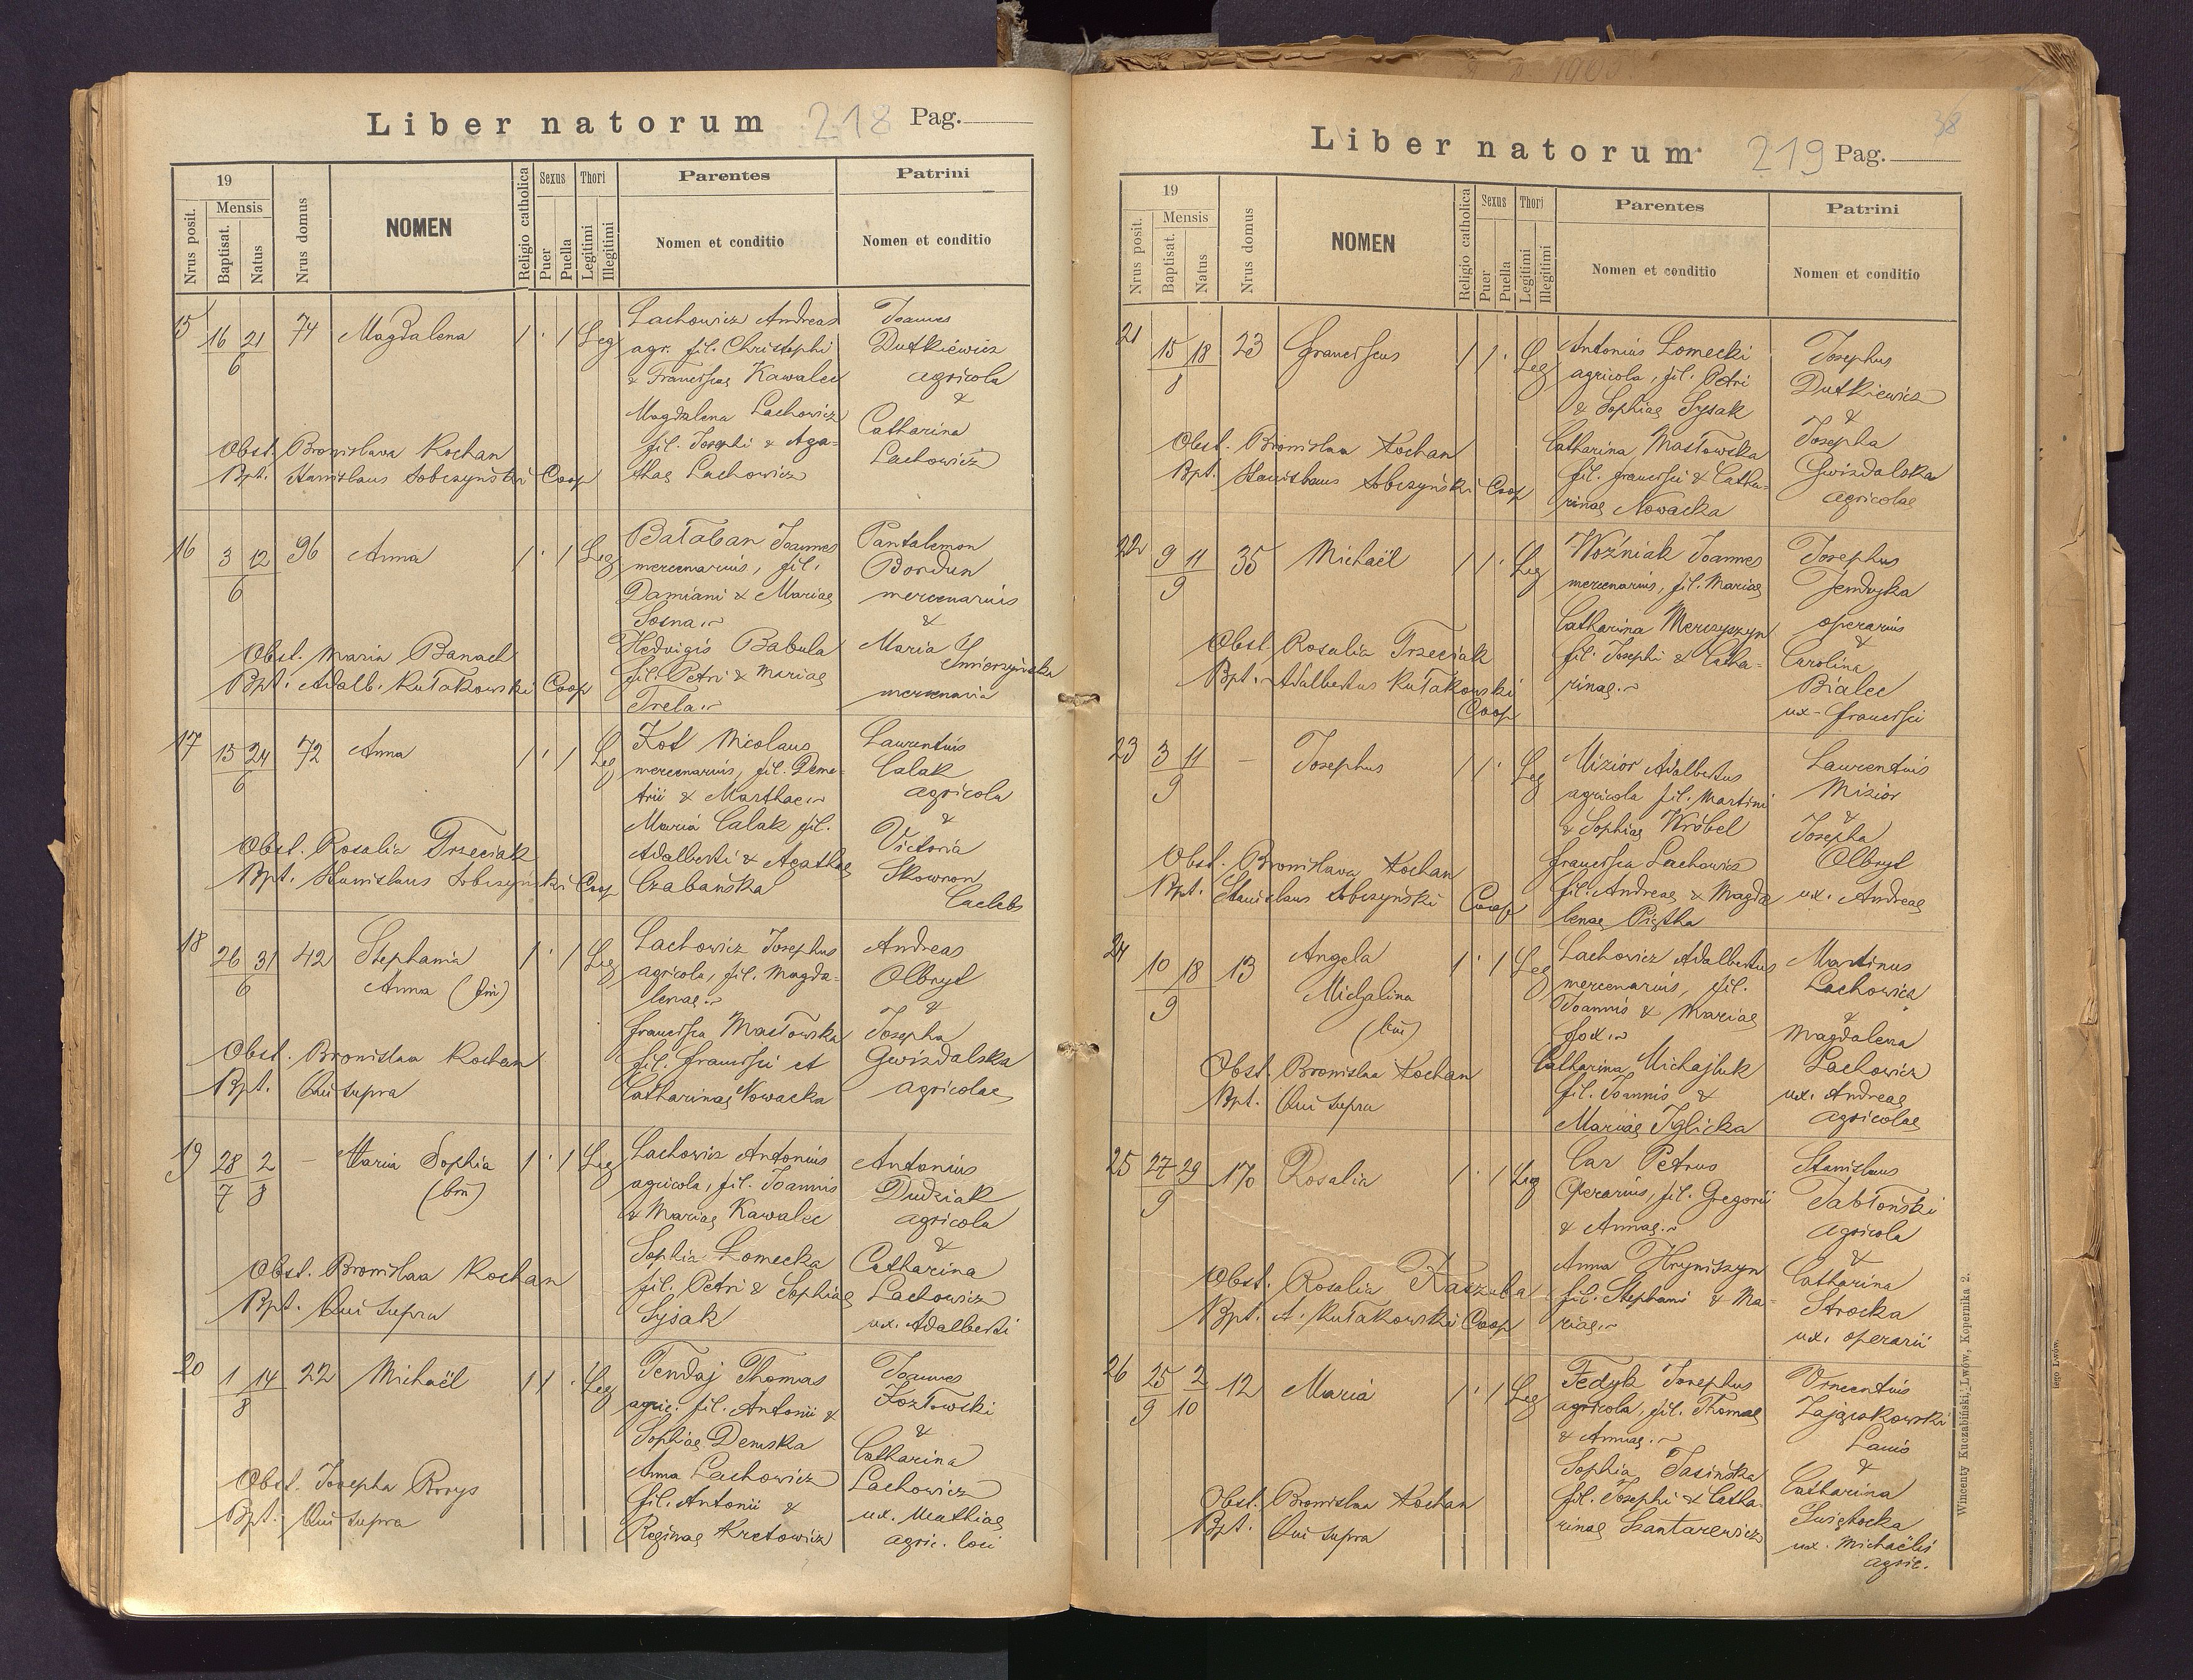 Liber natorum 218 Pag.
19
Nrus posit.
Mensis
Baptisat.
Natus
Nrus domus
NOMEN
Religio catholica
Sexus
Puer
Puella
Thori
Legitimi
Illegitimi
Parentes
Nomen et conditio
Patrini
Nomen et conditio
15 16 21 74 Magdalena 1 · 1 Leg
6
Lachowicz Andreas
agr. fil. Christophi
& Franciscae Kawalec
Magdalena Lachowicz
fil. Josephi & Aga-
thae Lachowicz
Joannes
Dutkiewicz
agricola
&
Catharina
Lachowicz
Obst. Bronislava Kochan
Bpt. Stanislaus Sobczyński Coop
16 3 12 96 Anna 1 · 1 Leg
6
Bałaban Joannes
mercenarius, fil.
Damiani & Mariae
Sosna
Hedvigis Babula
fil. Petri & Mariae
Trela
Pantalemon
Bordun
mercenarius
&
Maria
mercenaria
Obst. Maria Banach
Bpt. Adalb. Kułakowski Coop
17 15 24 72 Anna 1 · 1 Leg
6
Kot Nicolaus
mercenarius, fil. Deme-
trii & Marthae
Maria Calak fil.
Adalberti & Agathae
Czabańska
Laurentius
Calak
agricola
&
Victoria
Skowron
Caelebs
Obst. Rosalia Trzeciak
Bpt. Stanislaus Sobczyński Coop
18 26 31 42 Stephania 1 · 1 Leg
6
Anna (bin)
Lachowicz Josephus
agricola, fil. Magda-
lenae
Francisca Masłowska
fil. Francisci et
Catharinae Nowacka
Andreas
Olbryt
&
Josepha
Gwizdalska
agricolae
Obst. Bronislaa Kochan
Bpt. Qui supra
19 28 2 — Maria Sophia 1 · 1 Leg
7 8
(bin)
Lachowicz Antonius
agricola, fil. Joannis
& Mariae Kawalec
Sophia Łomecka
fil. Petri & Sophiae
Sysak
Antonius
Dudziak
agricola
&
Catharina
Lachowicz
ux. Adalberti
Obst. Bronislaa Kochan
Bpt. Qui supra
20 1 14 22 Michaël 1 1 · Leg
8
Tendaj Thomas
agric. fil. Antonii &
Sophiae Demska
Anna Lachowicz
fil. Antonii &
Reginae Kretowicz
Joannes
Kozłowski
&
Catharina
Lachowicz
ux. Mathiae
agric. loci
Obst. Josepha
Bpt. Qui supra
38
Liber natorum 219 Pag.
19
Nrus posit.
Mensis
Baptisat.
Natus
Nrus domus
NOMEN
Religio catholica
Sexus
Puer
Puella
Thori
Legitimi
Illegitimi
Parentes
Nomen et conditio
Patrini
Nomen et conditio
21 15 18 23 Franciscus 1 1 · Leg
8
Antonius Łomecki
agricola, fil. Petri
& Sophiae Sysak
Catharina Masłowska
fil. Francisci & Catha-
rinae Nowacka
Josephus
Dutkiewicz
&
Josepha
Gwizdalska
agricolae
Obst. Bronislaa Kochan
Bpt. Stanislaus Sobczyński Coop
22 9 11 35 Michaël 1 1 · Leg
9
Woźniak Joannes
mercenarius, fil. Mariae
Catharina Merczyszyn
fil. Josephi & Catha-
rinae
Josephus
Jendryka
operarius
&
Carolina
Bialec
ux. Francisci
Obst. Rosalia Trzeciak
Bpt. Adalbertus Kułakowski
Coop
23 3 11 — Josephus 1 1 · Leg
9
Mizior Adalbertus
agricola fil. Martini
& Sophiae Wróbel
Francisca Lachowicz
fil. Andreae & Magda
lenae Piątka
Laurentius
Mizior
&
Josepha
Olbryt
ux. Andreae
Obst. Bronislava Kochan
Bpt. Stanislaus Sobczyński Coop
24 10 18 13 Angela 1 · 1 Leg
9
Michalina
(bin)
Lachowicz Adalbertus
mercenarius, fil.
Joannis & Mariae
Catharina Michajluk
fil. Joannis &
Mariae Iglicka
Martinus
Lachowicz
&
Magdalena
Lachowicz
ux. Andreae
agricolae
Obst. Bronislaa Kochan
Bpt. Qui supra
25 27 29 170 Rosalia 1 · 1 Leg
9
Car Petrus
Operarius, fil. Gregorii
& Annae
Anna Hryniszyn
fil. Stephani & Ma-
riae
Stanislaus
Jabłoński
agricola
&
Catharina
Strocka
ux. operarii
Obst. Rosalia Kaszuba
Bpt. A. Kułakowski Coop
26 25 2 12 Maria 1 · 1 Leg
9 10
Fedyk Josephus
agricola, fil. Thomae
& Annae
Sophia Jasińska
fil. Josephi & Catha-
rinae Szantarewicz
Vincentius
Zajączkowski
Lanio
&
Catharina
Świętocka
ux. Michaëlis
agric.
Obst. Bronislaa Kochan
Bpt. Qui supra
Wincenty Kuczabiński, Lwów, Kopernika 2.